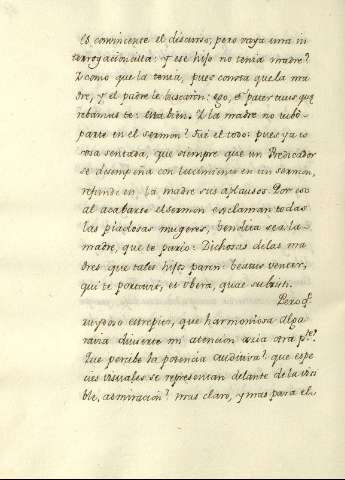 Es conviniente el discurso, pero vaya una in
terrogacioncilla: y ese hijo no tenia madre?
Y como que la tenia, pues consta que la ma
dre, y el padre le buscaron: ego, et pater tuus quę
rebamus te: esta bien. Y la madre no tubo
parte en el sermon? Fué el todo: pues ya es
cosa sentada, que siempre que un Predicador
se desempeña con lucimiento en un sermon,
refunde en la madre sus aplausos. Por eso
al acabarse el sermon esclaman todas
las piadosas mugeres, bendita sea la
madre, que te pario: Dichosas de las ma
dres que tales hijos paren: beatus venter,
qui te portavit, et ubera, quae suxisti.
Pero q.
ruydoso estrepito, que harmoniosa alga
ravia divierte mi atencion azia otra pte?
Que percibe la potencia auditiva? que espe
cies visuales se representan delante de la visi
ble, admiracion? mas claro, y mas para el